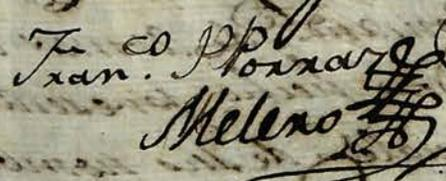 Fran.co PPorraz
Melero